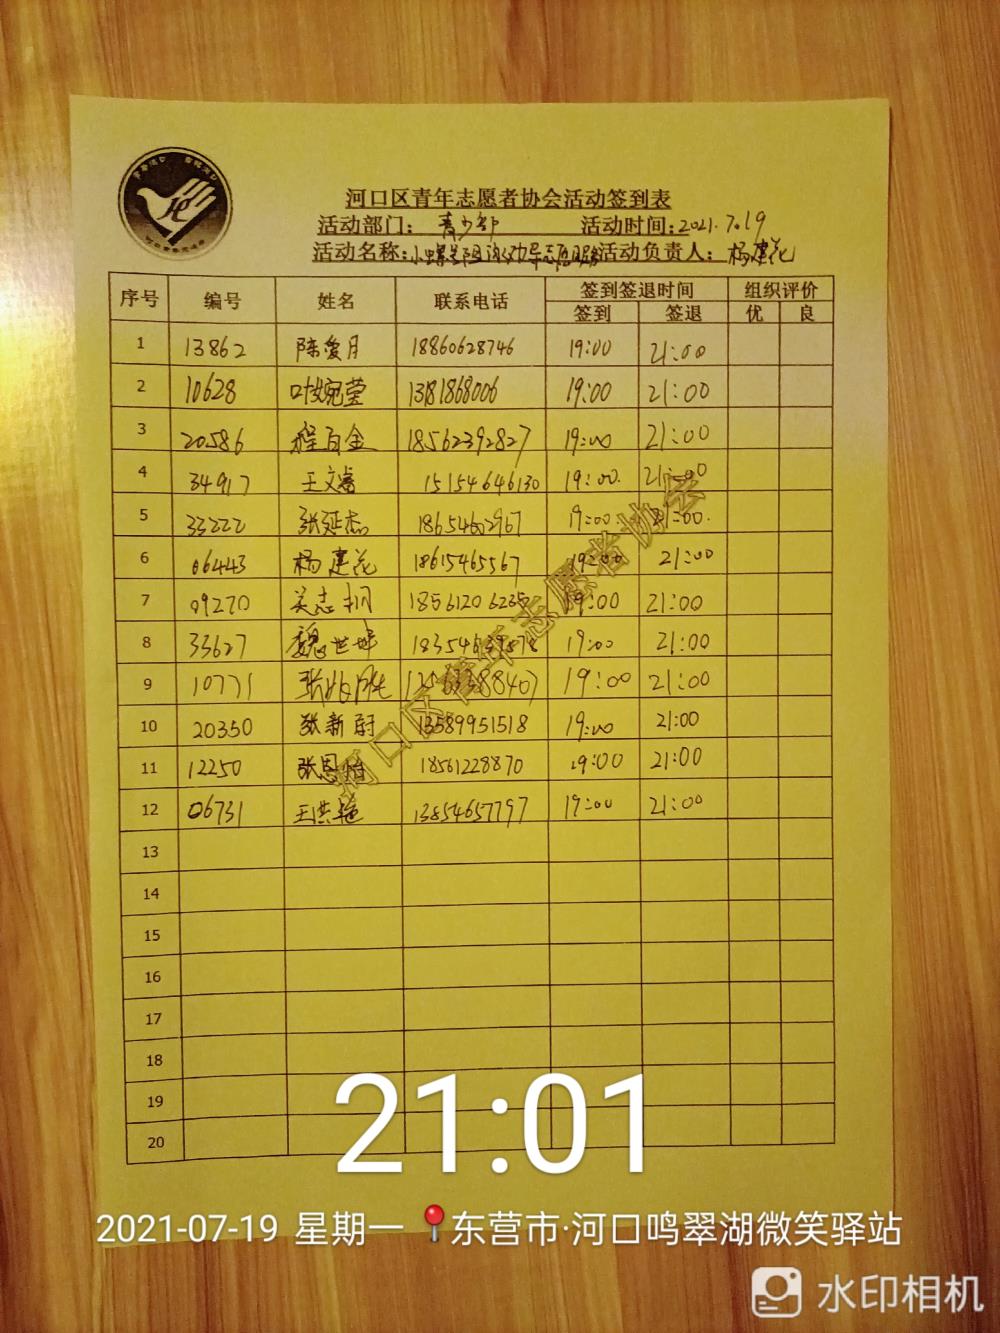 河口区青年志愿者协会活动签到表
活动部门: 青少部 活动时间:2021.7.19
活动名称: 活动负责人: 杨建花
序号 编号 姓名 联系电话 签到签退时间 组织评价
签到 签退 优 良
1 13862 陈爱月 18860628746 19:00 21:00
2 10628 叶婉莹 13181868006 19:00 21:00
3 20586 程百金 18562392827 19:00 21:00
4 34917 王文睿 15154646130 19:00. 21:00
5 33222 张延杰 18654602967 19:00 21:00.
6 06443 杨建花 18615465567 19:00 21:00
7 09270 吴志 18561206235 19:00 21:00
8 33627 魏世 18354639878 19:00 21:00
9 10771 张 19:00 21:00
10 20350 张新蔚 13589951518 19:00 21:00
11 12250 张恩怡 18561228870 19:00 21:00
12 06731 王洪艳 13854657797 19:00 21:00
13
14
15
16
17
18
19
20
河口区青年志愿者协会
21:01
2021-07-19 星期一 东营市·河口鸣翠湖微笑驿站
水印相机